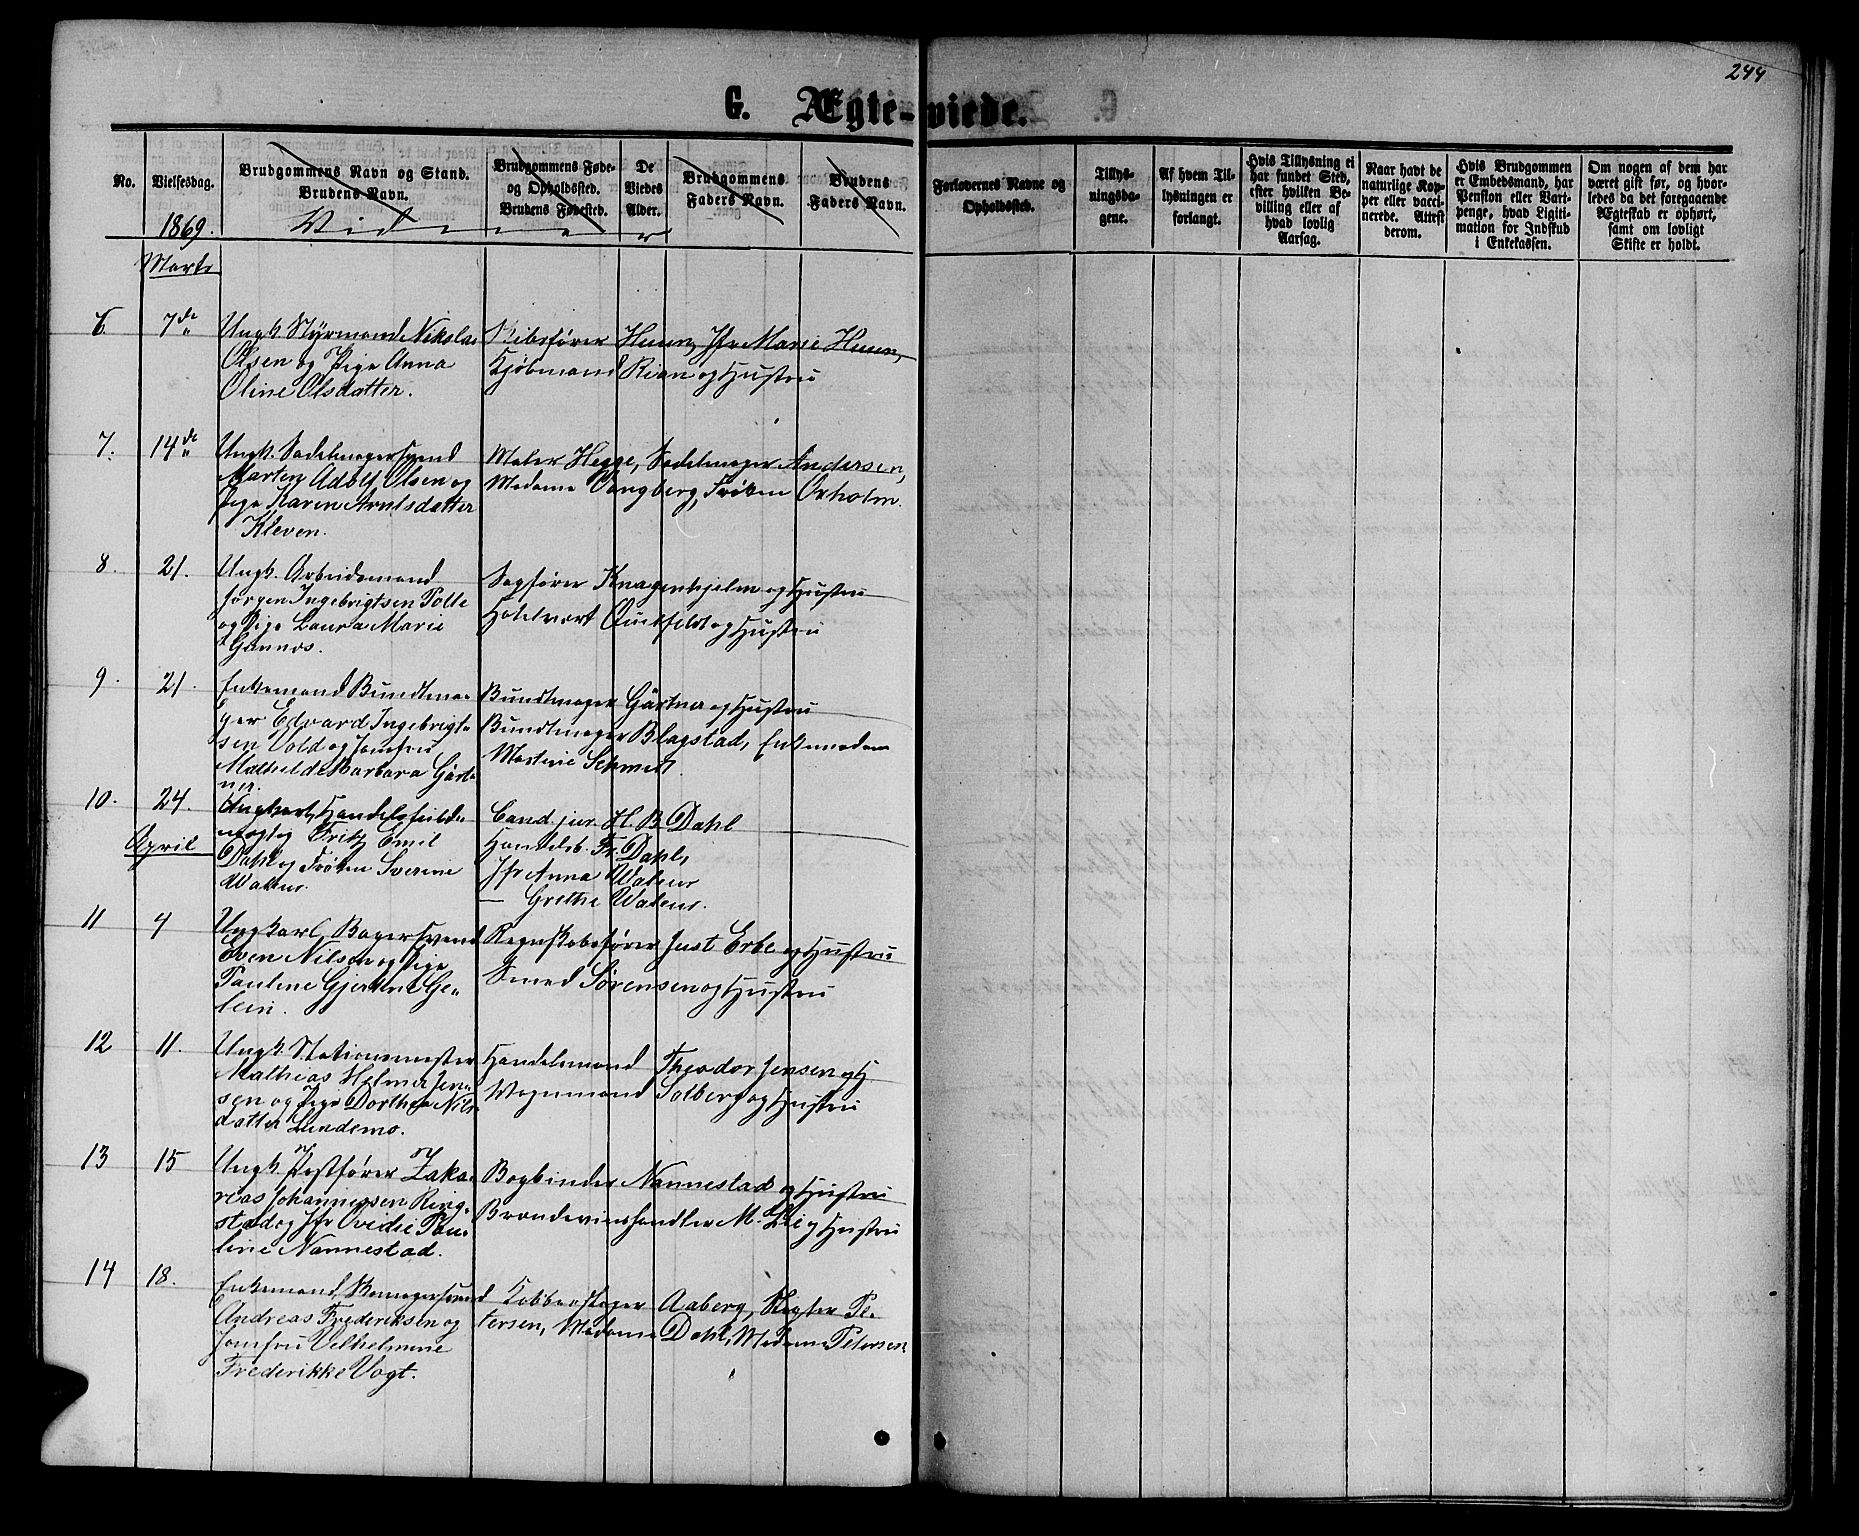 244
G. Ægte-viede.
No.
Vielsesdag.
Brudgommens Navn og Stand.
Brudens Navn.
Brudgommens Føde-
og Opholdssted.
Brudens Fødested.
De
Viedes
Alder.
Brudgommens
Faders Navn.
Brudens
Faders Navn.
Forlovernes Navne og
Opholdssted.
Tillys-
ningsda-
gene.
Af hvem Til-
lysningen er
forlangt.
Hvis Tillysning ei
har fundet Sted,
efter hvilken Be-
villing eller af
hvad lovlig
Aarsag.
Naar havt de
naturlige Kop-
per eller vacci-
nerede. Attest
derom.
Hvis Brudgommen
er Embedsmand, har
Pension eller Vart-
penge, hvad Ligiti-
mation for Indskud
i Enkekassen.
Om nogen af dem har
været gift før, og hvor-
ledes da det foregaaende
Ægteskab er ophørt,
samt om lovligt
Skifte er holdt.
1869.
Vidner
Marts
6 7de
Ungk. Styrmand Nikolai
Olsen og Pige Anna
Oline Olsdatter.
Skibsfører Huun, Jfr Marie Huun,
Kjøbmand Rian og Hustru
7. 14de
Ungk. Sadelmagersvend
Marten Adolf Olsen og
Pige Karen Arntsdatter
Kleven.
Maler Hegge, Sadelmager Andersen,
Madame Vangberg, Frøken Oxholm.
8. 21.
Ungk. Arbeidsmand
Jørgen Ingebrigtsen Polle
og Pige Laura Marie
Sagfører Knagenhjelm og Hustru
Hotelvert Quisfeldt og Hustru
9. 21.
Enkemand Bundtma-
ger Edvard Ingebrigt-
sen Vold og Jomfru
Mathilde Barbara Gärt-
ner.
Bundtmager Gärtner og Hustru
Bundtmager Blagstad, Enkemadam
Martine Schmidt
10. 24.
Ungkarl, Handelsfuld-
mægtig Fritz Emil
Dahl og Frøken Severine
Cand. jur. H. B. Dahl
Handelsb. Fr. Dahl,
Jfr Anna
— Grethe
April
11 4
Ungkarl, Bagersvend
Even Nilsen og Pige
Pauline Gjertine Ge-
lein.
Regnskabsfører Just Erbe og Hustru
Smed Sørensen og Hustru
12 11.
Ungk. Stationsmester
Mathias Helmer Jen-
sen og Pige Dorthea Nils-
datter Lundemo.
Handelsmand Theodor Jensen og H.
Vognmand Solberg og Hustru
13 15
Ungk. Postfører Zaka-
rias Johannessen Ring-
stad og Jfr Ovidie Pau-
line Nannestad.
Bogbinder Nannestad og Hustru
Brændeviinshandler M. Lie og Hustru
14 18.
Enkemand, Skomagersvend
Andreas Frederiksen og
Jomfru Vilhelmine
Frederikke Vogt.
Kobberslager Aaberg, Slagter Pe-
tersen, Madame Dahl, Madame Petersen